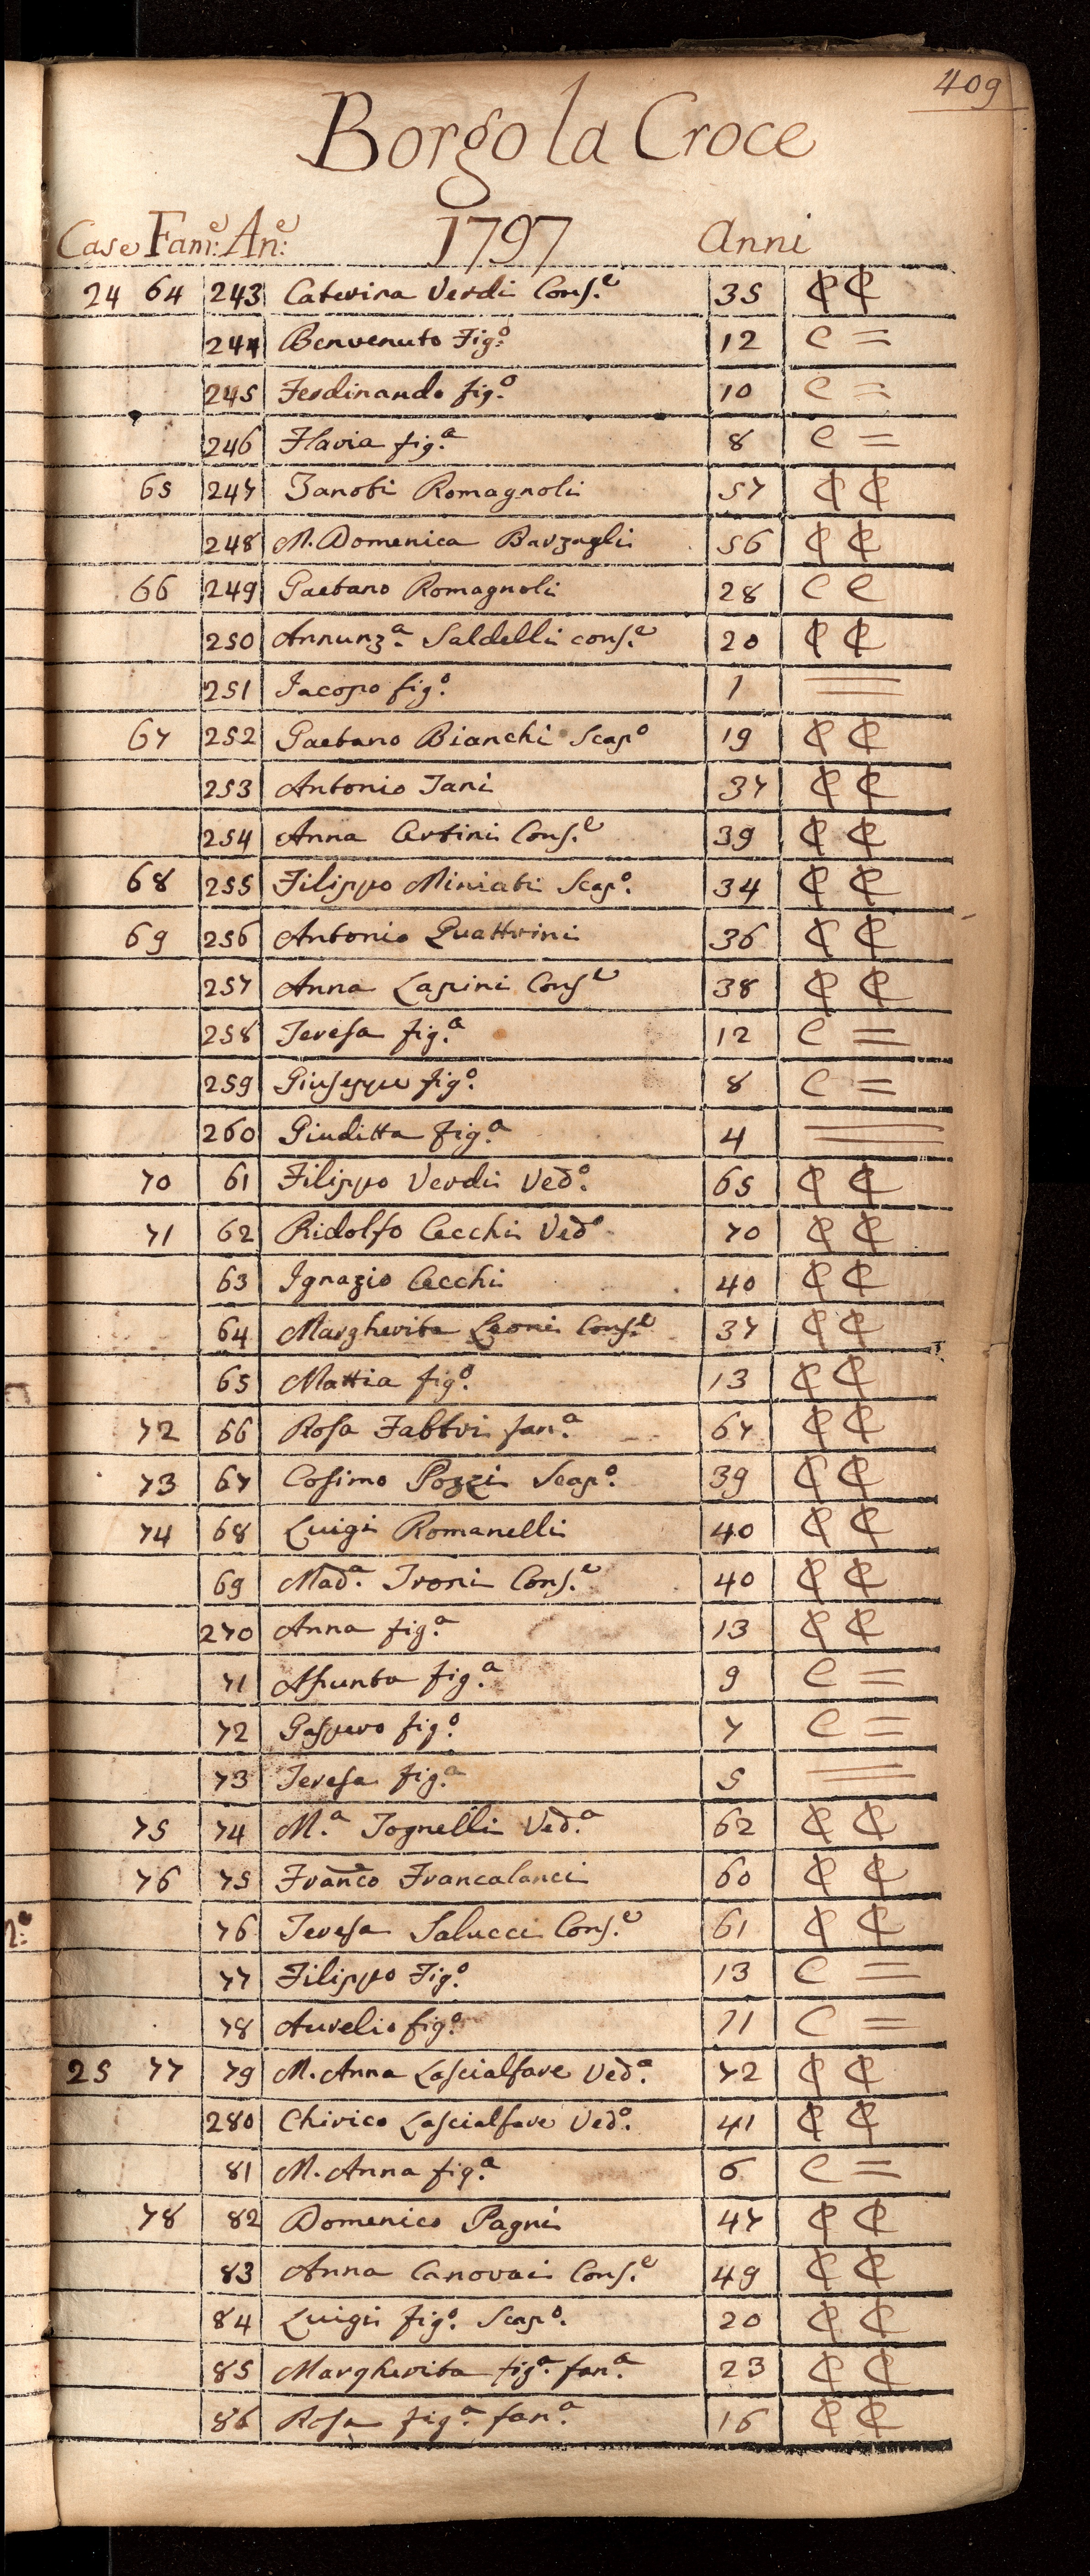 409
Borgo la Croce
Case Fam:e An:e 1797 Anni
24 64 243 Caterina Verdi Cons.e 35 ₵ ₵
244 Benvenuto Fig.o 12 C =
245 Ferdinando fig.o 10 C =
246 Flavia fig.a 8 C =
65 247 Zanobi Romagnoli 57 ₵ ₵
248 M. Domenica Barzagli 56 ₵ ₵
66 249 Gaetano Romagnoli 28 C C
250 Annunz.a Saldelli cons.e 20 ₵ ₵
251 Iacopo fig.o 1 =
67 252 Gaetano Bianchi Scap.o 19 ₵ ₵
253 Antonio Tani 37 ₵ ₵
254 Anna Certini Cons.e 39 ₵ ₵
68 255 Filippo Miniati Scap.o 34 ₵ ₵
69 256 Antonio Quattrini 36 ₵ ₵
257 Anna Lapini Cons.e 38 ₵ ₵
258 Teresa fig.a 12 C =
259 Giuseppe fig.o 8 C =
260 Giuditta fig.a 4 =
70 61 Filippo Verdi Ved.o 65 ₵ ₵
71 62 Ridolfo Cecchi Ved.o 70 ₵ ₵
63 Ignazio Cecchi 40 ₵ ₵
64 Margherita Leoni Cons.e 37 ₵ ₵
65 Mattia fig.o 13 ₵ ₵
72 66 Rosa Fabbri fan.a 67 ₵ ₵
73 67 Cosimo Pozzi Scap.o 39 ₵ ₵
74 68 Luigi Romanelli 40 ₵ ₵
69 Mad.a Troni Cons.e 40 ₵ ₵
270 Anna fig.a 13 ₵ ₵
71 Assunta fig.a 9 C =
72 Gaspero fig.o 7 C =
73 Teresa fig.a 5 =
75 74 M.a Tognelli Ved.a 62 ₵ ₵
76 75 Franco Francalanci 60 ₵ ₵
76 Teresa Salucci Cons.e 61 ₵ ₵
77 Filippo Fig.o 13 C =
78 Aurelio fig.o 11 C =
25 77 79 M. Anna Lascialfare Ved.a 72 ₵ ₵
280 Chirico Lascialfare Ved.o 41 ₵ ₵
81 M. Anna fig.a 6 C =
78 82 Domenico Pagni 47 ₵ ₵
83 Anna Canovai Cons.e 49 ₵ ₵
84 Luigi fig.o Scap.o 20 ₵ ₵
85 Margherita fig.a fan.a 23 ₵ ₵
86 Rosa fig.a fan.a 16 ₵ ₵